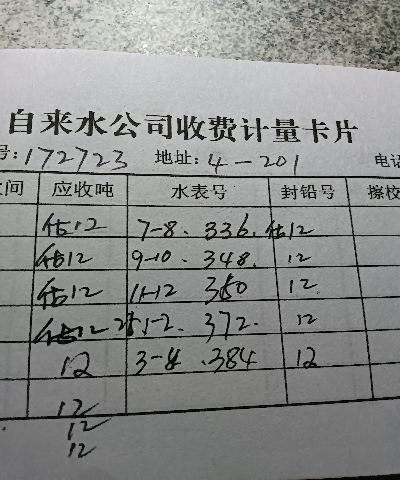 自来水公司收费计量卡片
号:172723 地址:4-201 电话
间 应收吨 水表号 封铅号 擦校
估12 7-8. 336. 估12
估12 9-10. 348. 12
估12 11-12 360 12
估12 1-2. 372. 12
12 3-4 .384 12
12
12
12